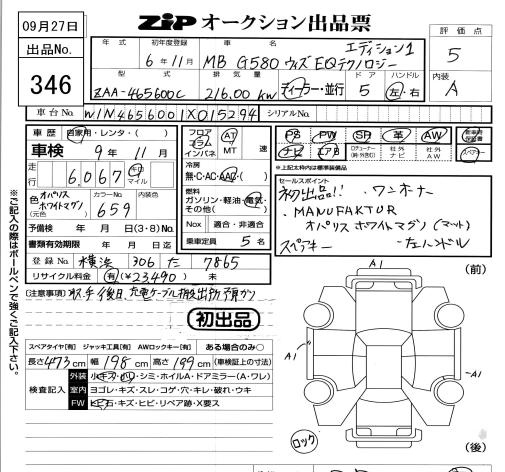 09月27日
出品No.
346
ZIP オークション出品票
評価点
5
内装
A
年式
初年度登録
車名
6年11月
MB G580 ウィズ EQテクノロジー エディション1
型式
排気量
ドア
ハンドル
ZAA-465600C
216.00 kw
ディーラー・並行
5
左・右
車台No.
W1N4656001X015294
シリアルNo.
車歴
自家用・レンタ・( )
車検
9年11月
走行
6,067
キロ
マイル
色
オパリスホワイトマグノ
(元色)
カラーNo.
659
内装色
予備検 年 月 日(3・8)No.
書類有効期限 年 月 日迄
登録No.
横浜 306 た 7865
リサイクル料金
有(¥23,490)未
フロア
コラム
インパネ
AT
MT
速
冷房
無・C・AC・AAC・( )
燃料
ガソリン・軽油・電気・
その他( )
Nox
適合・非適合
乗車定員
5名
PS PW SR 革 AW
ナビ エアB
社外ナビ
社外AW
スペアキー
セールスポイント
初出品!! ・ワンオーナー
・MANUFAKTUR
オパリスホワイトマグノ(マット)
スペアキー ・左ハンドル
(注意事項)
初出品
スペアタイヤ[有] ジャッキ工具[有] AWロックキー[有] ある場合のみ○
長さ473cm 幅198cm 高さ199cm (車検証上の寸法)
検査記入
外装
小キズ・凹・シミ・ホイルA・ドアミラー(A・ワレ)
室内
ヨゴレ・キズ・スレ・コゲ・穴・キレ・破れ・ウキ
FW
ヒ石・キズ・ヒビ・リペア跡・X要ス
※ご記入の際はボールペンで強くご記入下さい。
(前)
A1
A1
A1
ロック
(後)